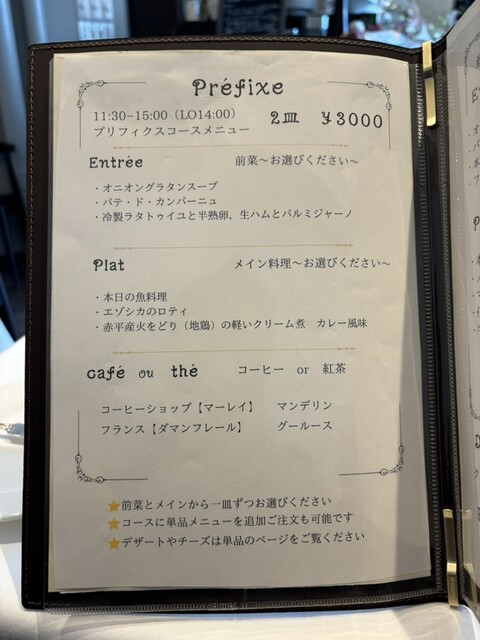 Préfixe
11:30-15:00（LO14:00）
プリフィクスコースメニュー
2皿 ¥3000
Entrée 前菜～お選びください～
・オニオングラタンスープ
・パテ・ド・カンパーニュ
・冷製ラタトゥイユと半熟卵，生ハムとパルミジャーノ
Plat メイン料理～お選びください～
・本日の魚料理
・エゾシカのロティ
・赤平産火をどり（地鶏）の軽いクリーム煮 カレー風味
café ou thé コーヒー or 紅茶
コーヒーショップ【マーレイ】 マンデリン
フランス【ダマンフレール】 グールース
⭐前菜とメインから一皿ずつお選びください
⭐コースに単品メニューを追加ご注文も可能です
⭐デザートやチーズは単品のページをご覧ください